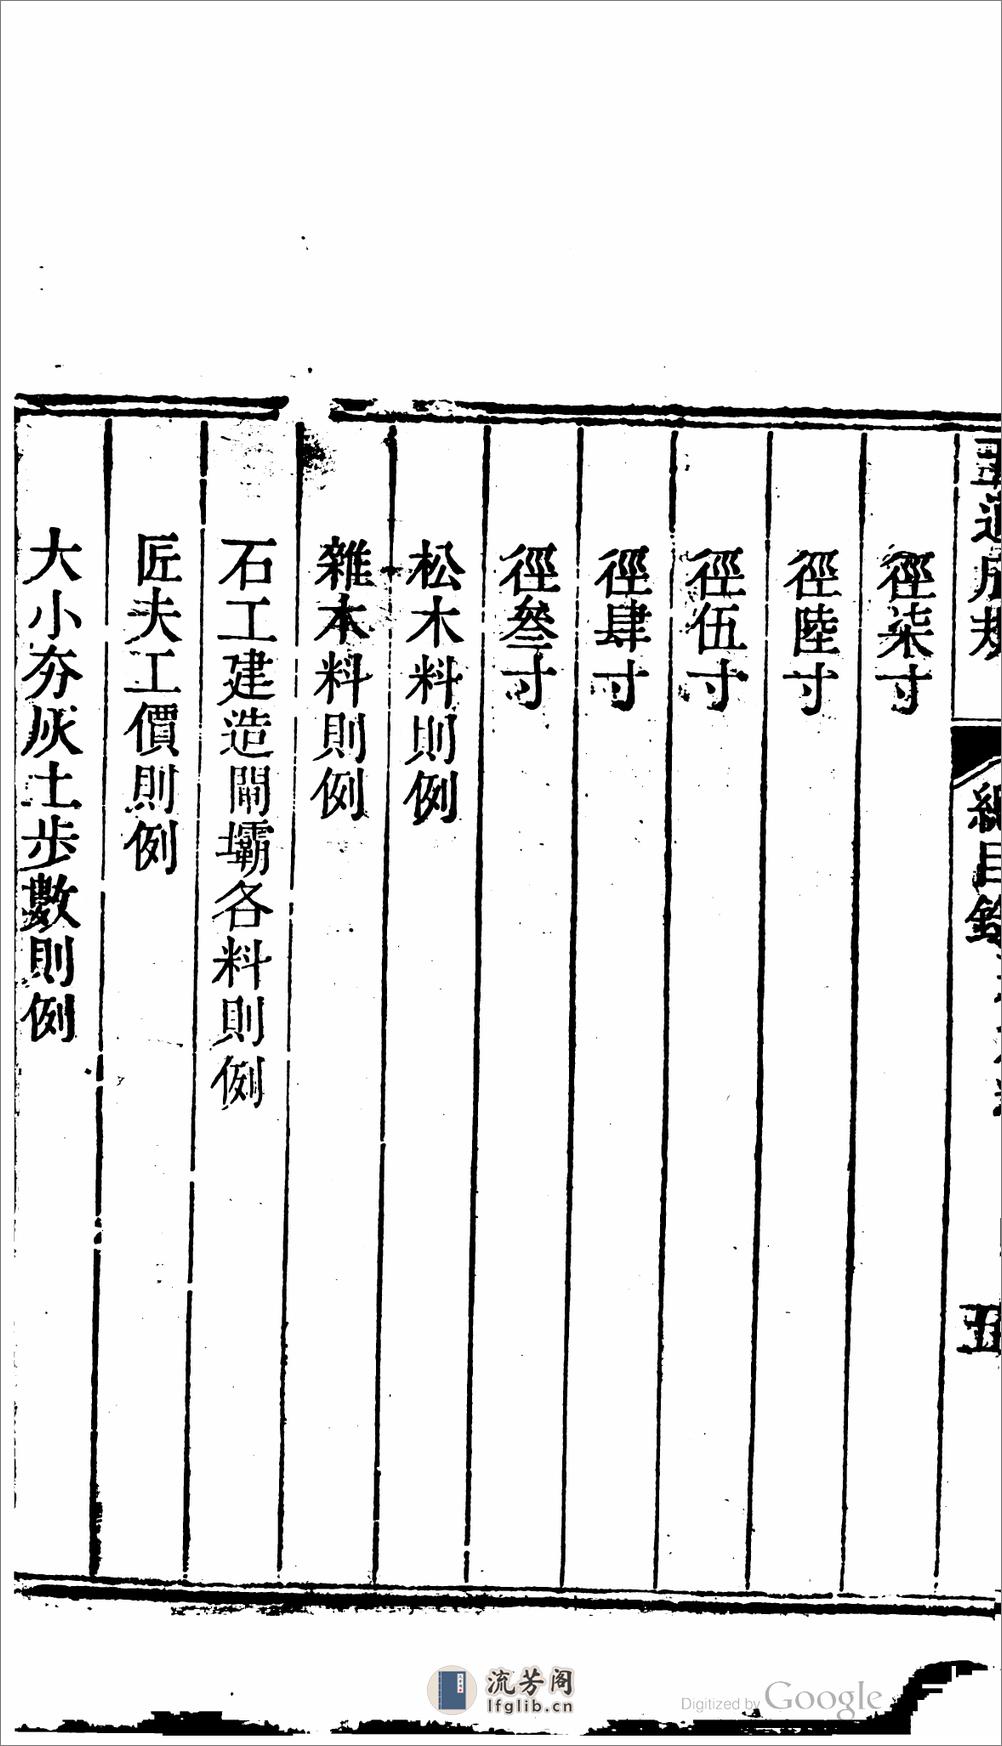 總目錄
五
徑柒寸
徑陸寸
徑伍寸
徑肆寸
徑叄寸
松木料則例
雜木料則例
石工建造閘壩各料則例
匠夫工價則例
大小夯灰土步數則例
流芳阁
lfglib.cn
Digitized by Google